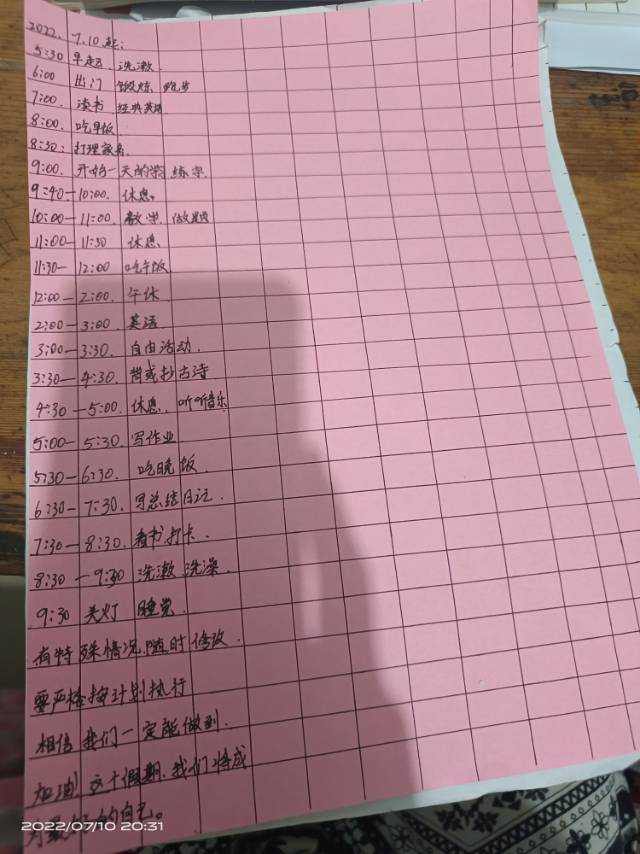 2022. 7.10.起:
5:30 早起 洗漱
6:00 出门 锻炼 跑步
7:00. 读书 经典英语
8:00. 吃早饭
8:30: 打理家务
9:00. 开始一天的学习 练字
9:40-10:00. 休息。
10:00-11:00. 数学. 做题
11:00-11:30 休息
11:30-12:00 吃午饭
12:00-2:00. 午休
2:00-3:00. 英语
3:00-3:30. 自由活动.
3:30-4:30. 背或抄古诗
4:30-5:00. 休息. 听听音乐
5:00-5:30. 写作业
5:30-6:30. 吃晚饭.
6:30-7:30. 写总结日记.
7:30-8:30. 看书 打卡.
8:30-9:30 洗漱 洗澡.
9:30 关灯 睡觉.
有特殊情况,随时修改.
要严格按计划执行
相信我们一定能做到.
加油! 这个假期,我们将成
的自己。
2022/07/10 20:31